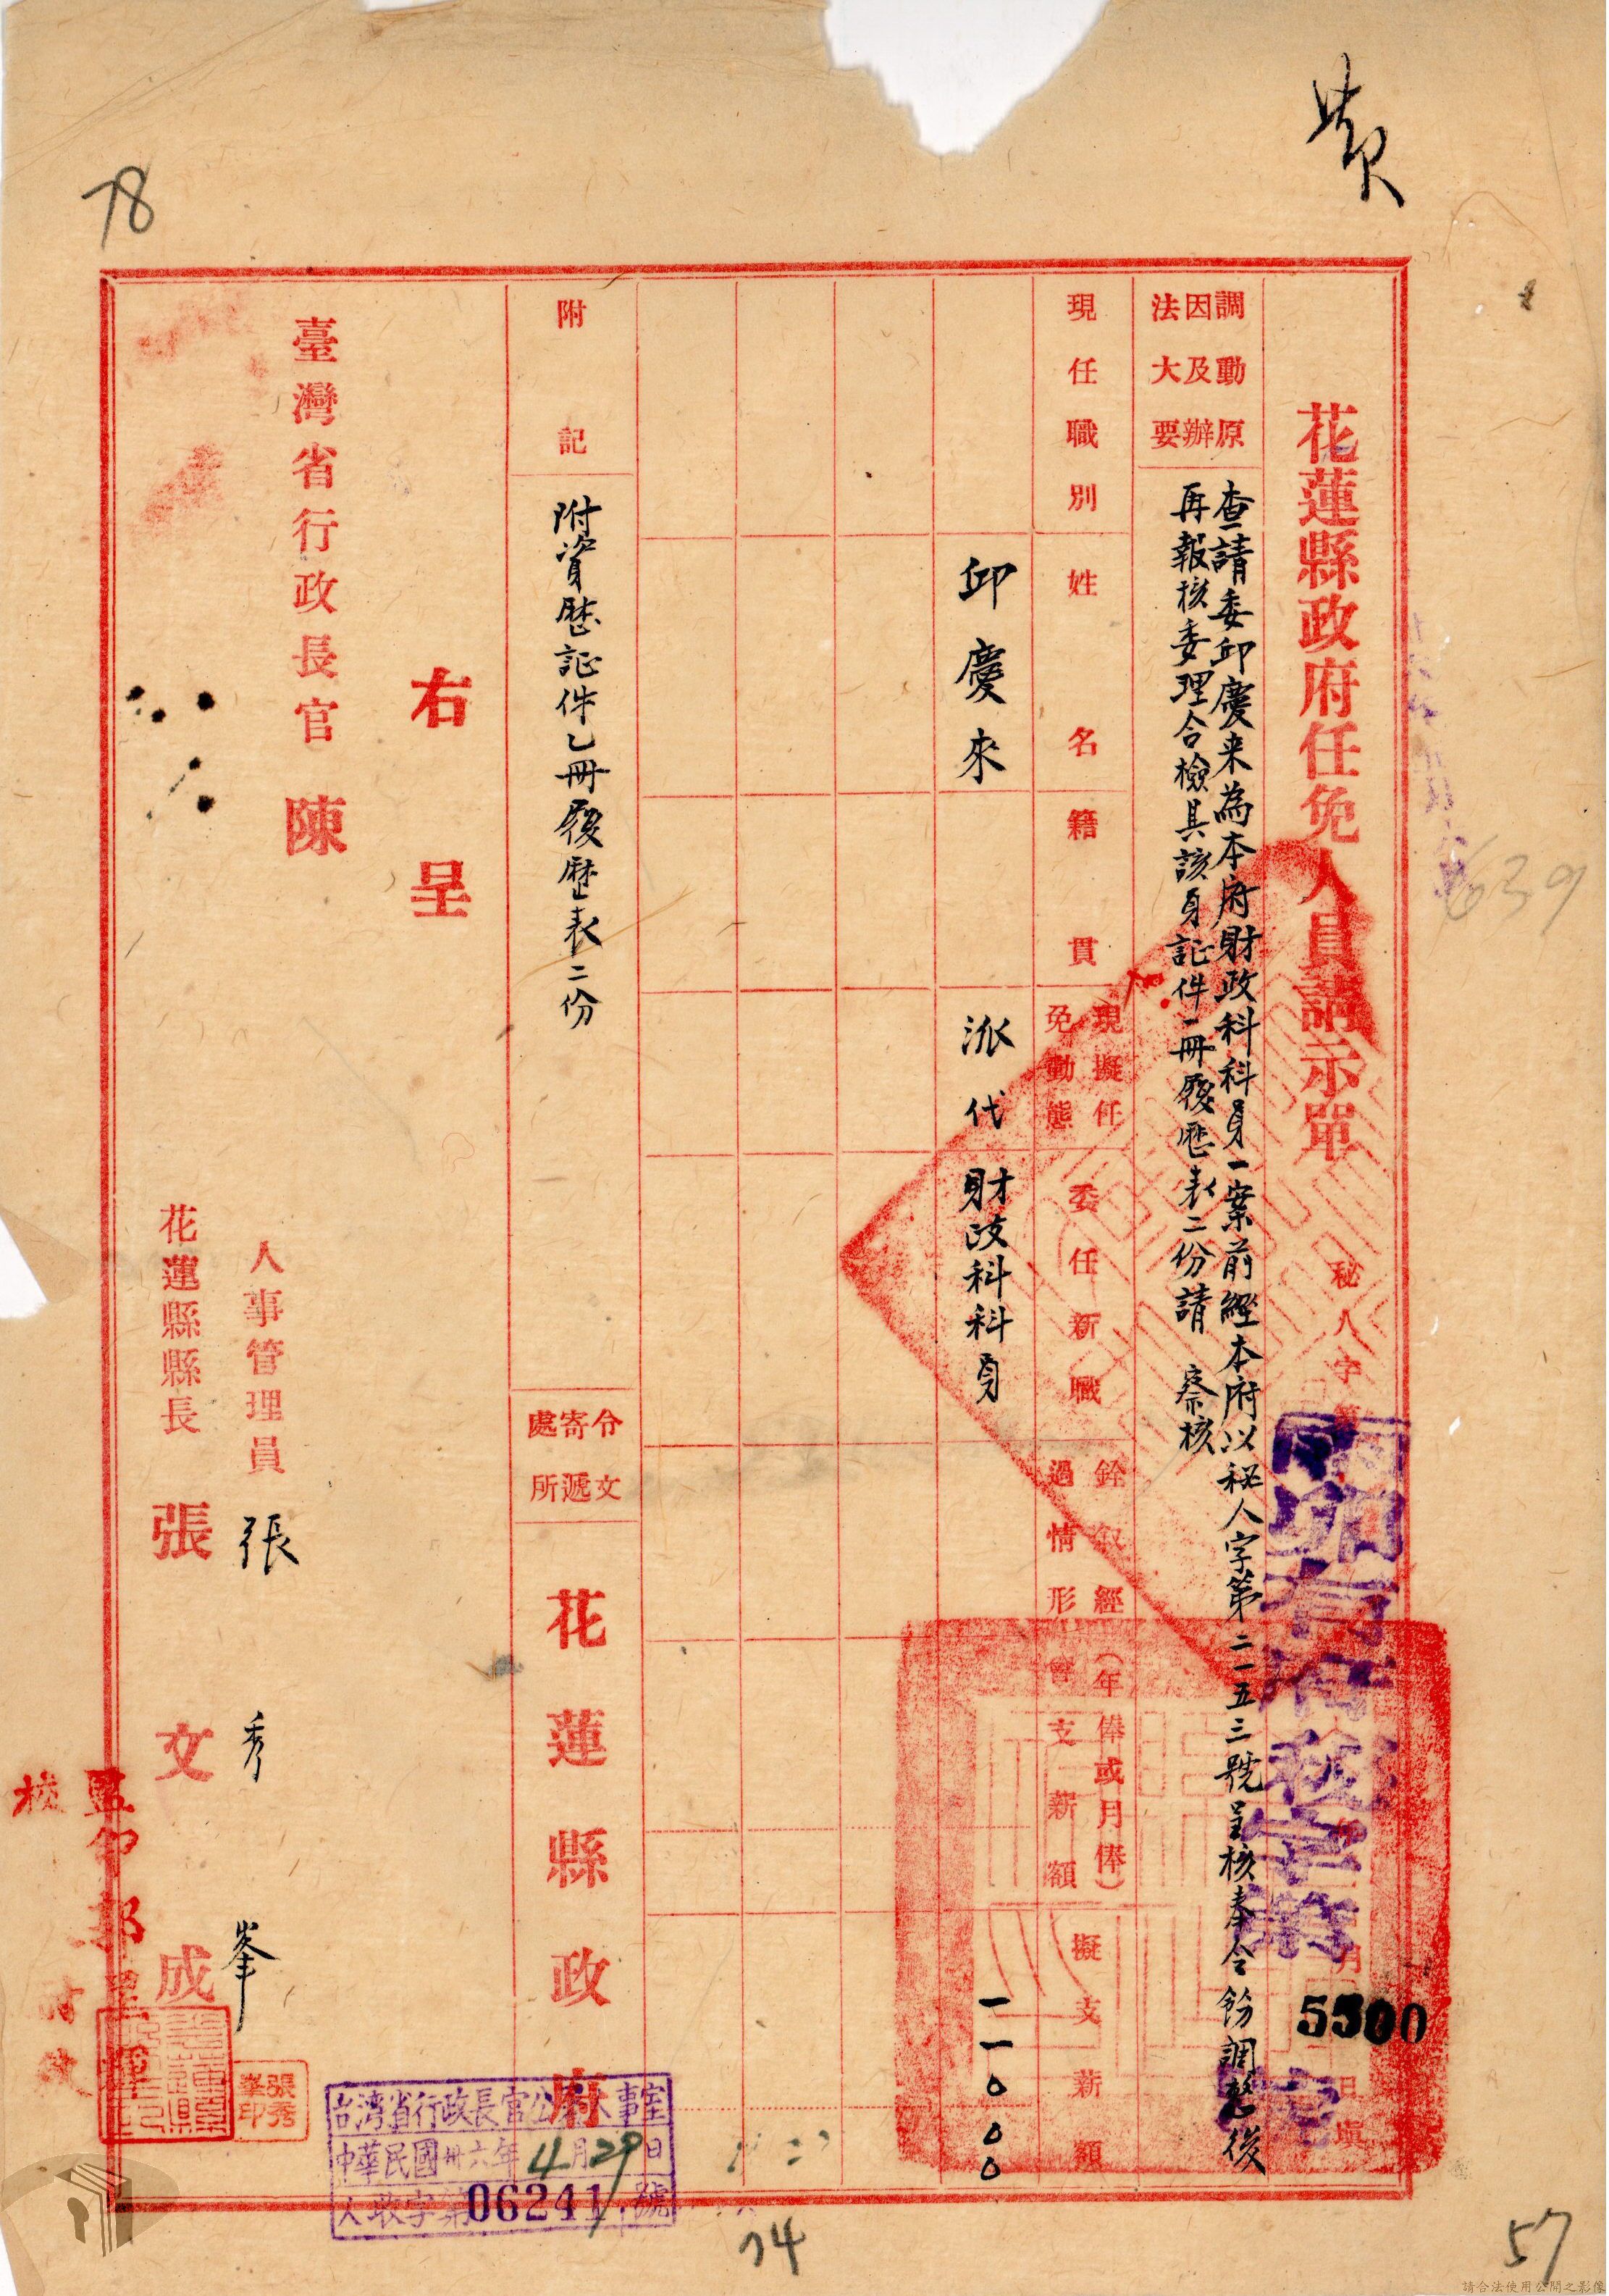 費
78
花蓮縣政府任免人員請示單
秘人字第
5300
639
調動原因及辦法大要
查請委邱慶來為本府財政科科員一案前經本府以秘人字第二一五三號呈核奉令飭調整後
再報核委理合檢具該員証件一冊履歷表二份請 察核
現任職別
姓名
籍貫
現擬任免動態
委任新職
銓叙經過情形
(年俸或月俸)
曾支薪額
擬支薪額
邱慶來
派代
財政科科員
一一〇〇〇
附記
附資歷証件乙冊履歷表二份
令文寄遞處所
花蓮縣政府
右呈
臺灣省行政長官 陳
人事管理員 張秀峯
花蓮縣縣長 張文成
張秀峯印
監印
校
台湾省行政長官公署人事室
中華民國卅六年4月29日
人政字第06241號
74
57
請合法使用公開之影像